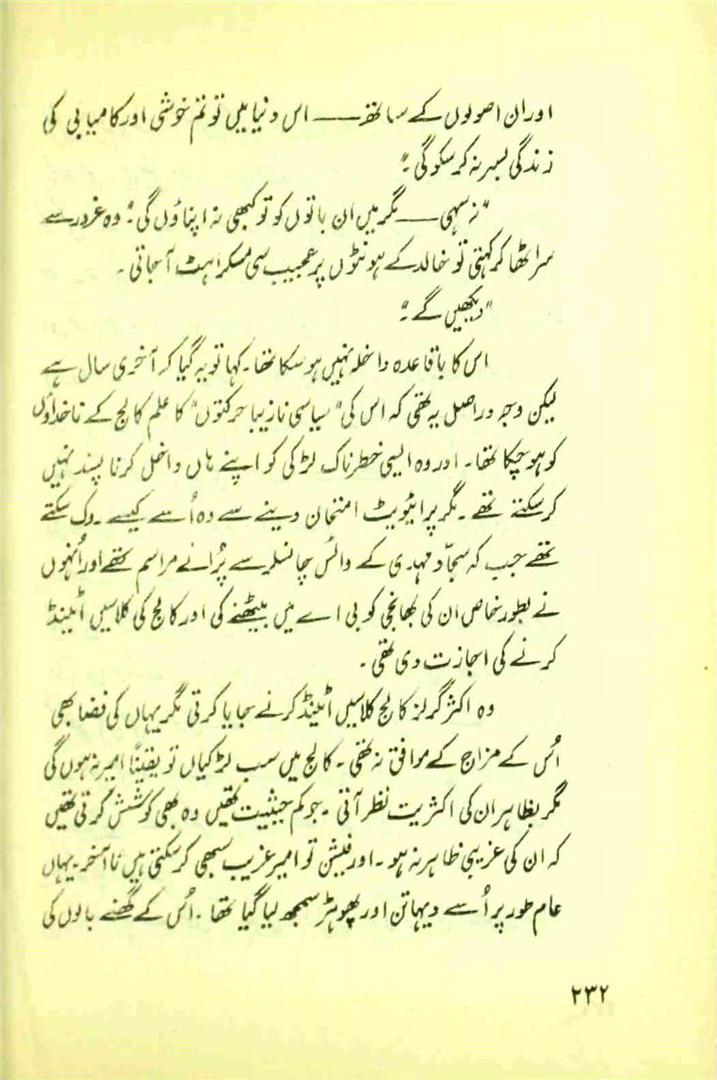 اور ان اصولوں کے ساتھ ــــ اس دنیا میں تو تم خوشی اور کامیابی کی
زندگی بسر نہ کر سکو گی ۔"
"نہ سہی ــــ مگر میں ان باتوں کو تو کبھی نہ اپناؤں گی ۔" وہ غرور سے
سر اٹھا کر کہتی تو خالد کے ہونٹوں پر عجیب سی مسکراہٹ آ جاتی ۔
"دیکھیں گے ۔"
اس کا باقاعدہ داخلہ نہیں ہو سکا تھا ۔ کہا تو یہ گیا کہ آخری سال ہے
لیکن وجہ دراصل یہ تھی کہ اس کی "سیاسی نازیبا حرکتوں" کا علم کالج کے ناخداؤں
کو ہو چکا تھا ۔ اور وہ ایسی خطرناک لڑکی کو اپنے ہاں داخل کرنا پسند نہیں
کر سکتے تھے ۔ مگر پرائیویٹ امتحان دینے سے وہ اُسے کیسے روک سکتے
تھے جب کہ سجّاد مہدی کے وائس چانسلر سے پُرانے مراسم تھے اور اُنہوں
نے بطور خاص ان کی بھانجی کو بی اے میں بیٹھنے کی اور کالج کی کلاسیں اٹینڈ
کرنے کی اجازت دی تھی ۔
وہ اکثر گرلز کالج کلاسیں اٹینڈ کرنے جایا کرتی مگر یہاں کی فضا بھی
اُس کے مزاج کے موافق نہ تھی ۔ کالج میں سب لڑکیاں تو یقیناً امیر نہ ہوں گی
مگر بظاہر ان کی اکثریت نظر آتی ۔ جو کم حیثیت تھیں وہ بھی کوشش کرتی تھیں
کہ ان کی غریبی ظاہر نہ ہو ۔ اور فیشن تو امیر غریب سبھی کر سکتی ہیں نا آخر ۔ یہاں
عام طور پر اُسے دیہاتن اور پھوہڑ سمجھ لیا گیا تھا ۔ اُس کے گھنے بالوں کی
۲۳۲